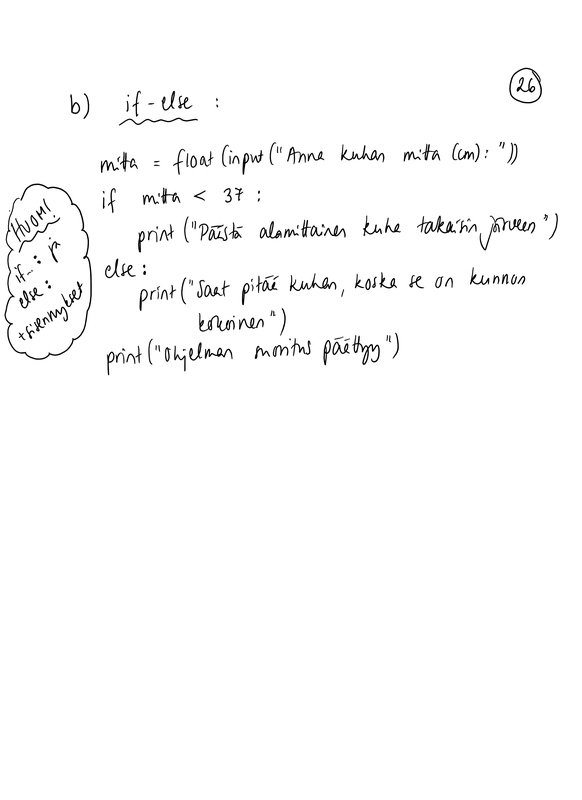 26
b) if-else :
mitta = float(input("Anna kuhan mitta (cm): "))
if mitta < 37 :
print("Päästä alamittainen kuha takaisin järveen")
else:
print("Saat pitää kuhan, koska se on kunnon
kokoinen")
print("Ohjelman suoritus päättyy")
HUOM!
if...: ja
else :
+sisennykset